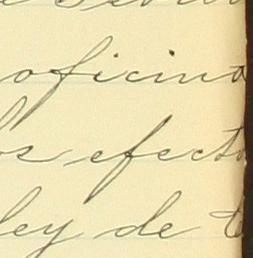 oficina
os efecto
ley de